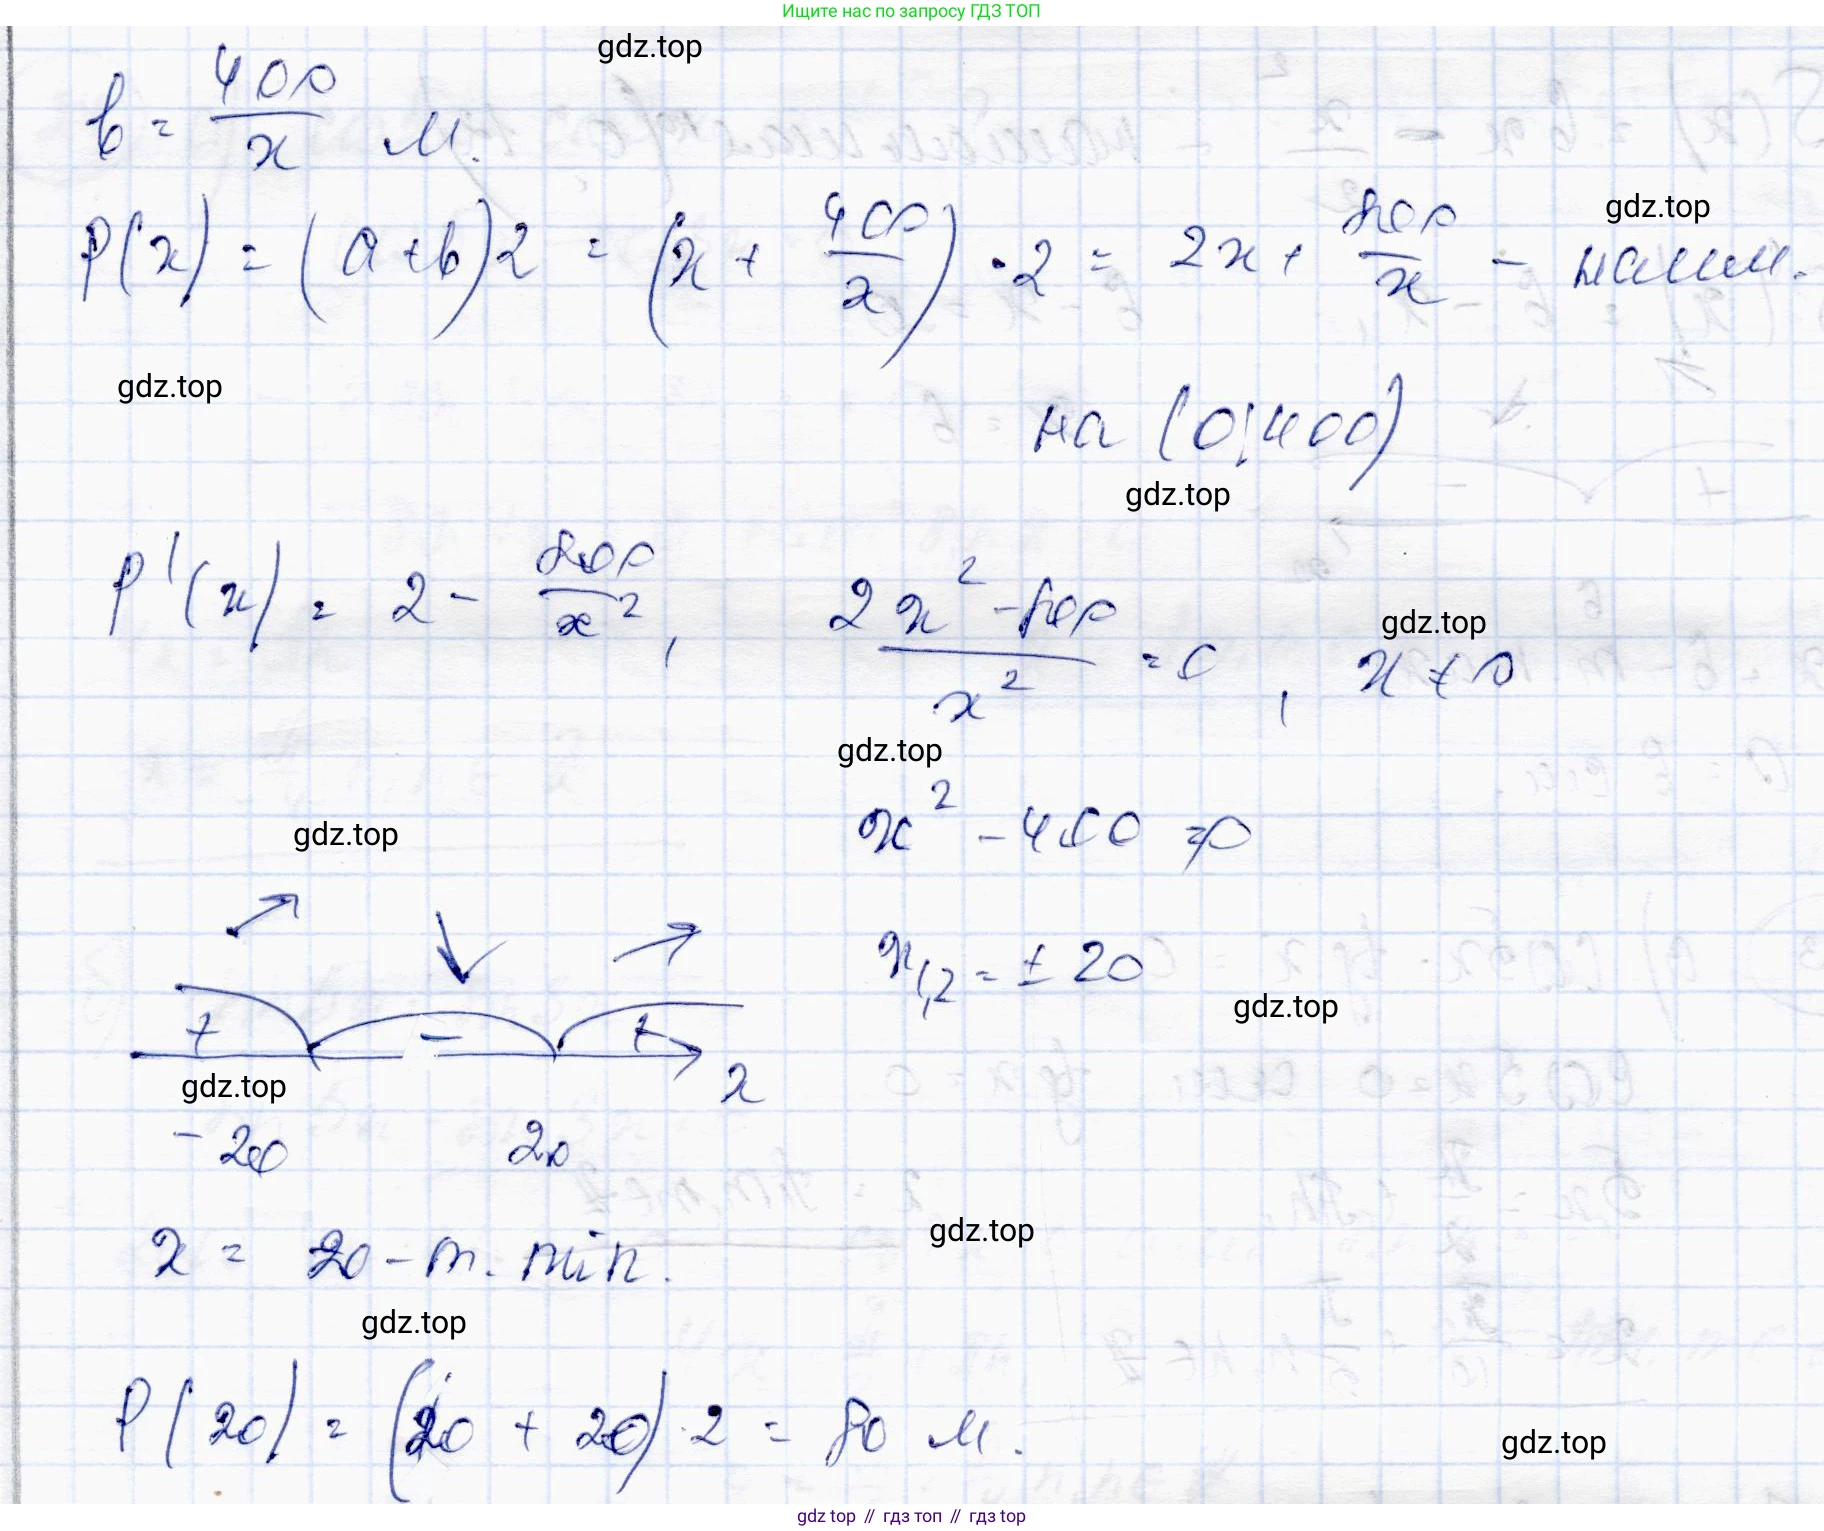 Ищите нас по запросу ГДЗ ТОП
gdz.top
b = 400/x м.
gdz.top
P(x) = (a+b)2 = (x + 400/x) · 2 = 2x + 800/x - наим.
gdz.top
на (0;400)
gdz.top
P'(x) = 2 - 800/x², (2x² - 800)/x² = 0, x ≠ 0
gdz.top
gdz.top
x² - 400 = 0
gdz.top
x1,2 = ± 20
gdz.top
+ - + x
gdz.top
-20 20
x = 20 - т. min.
gdz.top
gdz.top
P(20) = (20 + 20) · 2 = 80 м.
gdz.top
gdz top // гдз топ // gdz top